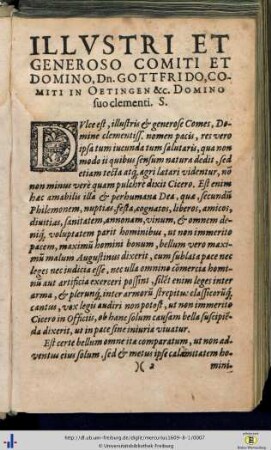 ILLVSTRI ET
GENEROSO COMITI ET
DOMINO, Dn. GOTTFRIDO, CO-
MITI IN OETINGEN &c. DOMINO
suo clementi. S.
DVlce est, illustris & generose Comes, Do-
mine clementiss. nomen pacis, res vero
ipsa tum iucunda tum salutaris, qua non
modo ii quibus sensum natura dedit, sed
etiam tecta atq; agri lætari videntur, nō
non minus vere quam pulchre dixit Cicero. Est enim
hæc amabilis illa & perhumana Dea, quæ secundū
Philemonem, nuptias, festa, cognatos, liberos, amicos,
diuitias, sanitatem, annonam, vinum, & omnem de-
niq; voluptatem parit hominibus, ut non immerito
pacem, maximū homini bonum, bellum vero maxi-
mū malum Augustinus dixerit, cum sublata pace nec
leges nec indicta esse, nec ulla omnino cōmercia homi-
nū aut artificia exerceri possint, silēt enim leges inter
arma, & plerunq; inter armorū strepitus classicorūq;
cantus, vox legū audiri non potest, ut non immerito
Cicero in Officiis, ob hanc solum causam bella suscipiē-
da dixerit, ut in pace sine iniuria viuatur.
Est certe bellum omne ita comparatum, ut non ad-
ventus eius solum, sed & metus ipse calamitatem ho-
)( 2 mini-
http://dl.ub.uni-freiburg.de/diglit/mercurius1609-8-1/0007
© Universitätsbibliothek Freiburg